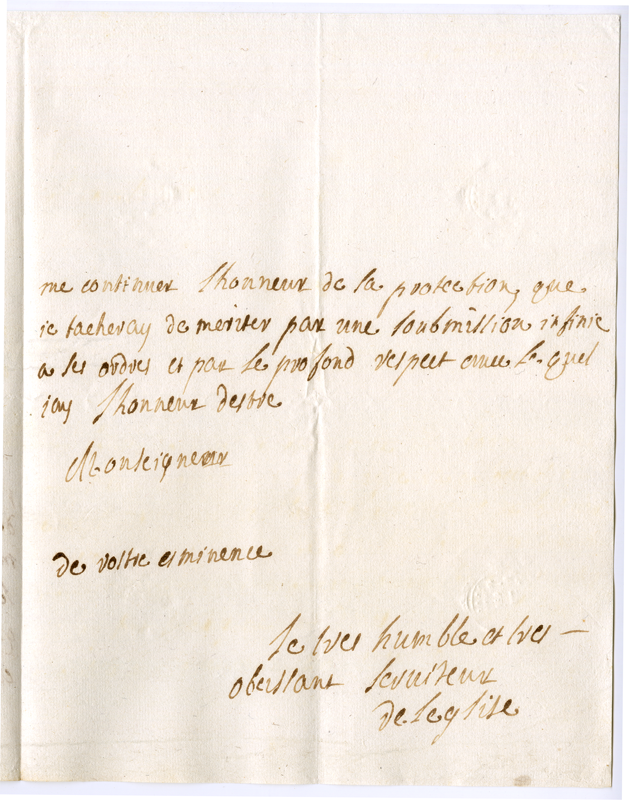 me continuer lhonneur de sa protection, que
ie tacheray de meriter par une soubmission infinie
a ses ordres et par le profond respect avec lequel
jay lhonneur destre
Monseigneur
de vostre eminence
le tres humble et tres
obeissant serviteur
de Leglise